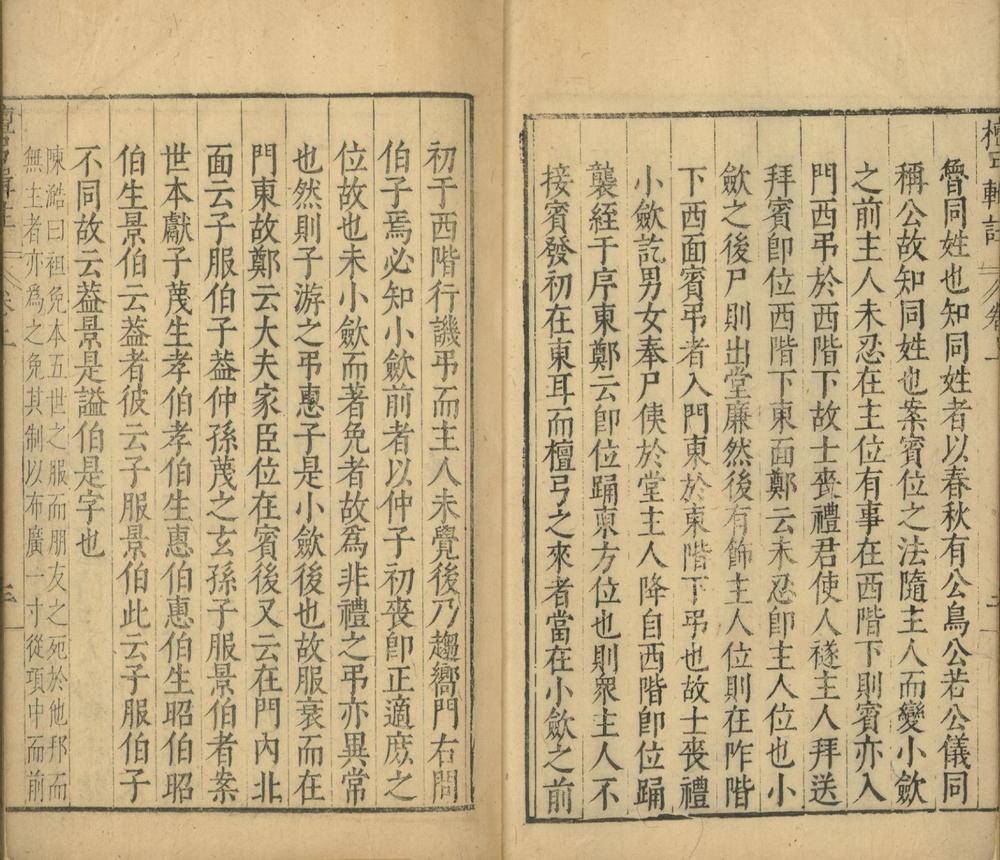 檀弓輯註 卷上
魯同姓也知同姓者以春秋有公鳥公若公儀同
稱公故知同姓也案賓位之法隨主人而變小歛
之前主人未忍在主位有事在西階下則賓亦入
門西弔於西階下故士喪禮君使人襚主人拜送
拜賓卽位西階下東面鄭云未忍卽主人位也小
歛之後尸則出堂廉然後有飾主人位則在阼階
下西面賓弔者入門東於東階下弔也故士喪禮
小歛訖男女奉尸侇於堂主人降自西階卽位踊
襲絰于序東鄭云卽位踊東方位也則眾主人不
接賓發初在東耳而檀弓之來者當在小歛之前
初于西階行譏弔而主人未覺後乃趨嚮門右問
伯子焉必知小歛前者以仲子初喪卽正適庶之
位故也未小歛而著免者故爲非禮之弔亦異常
也然則子游之弔惠子是小歛後也故服衰而在
門東故鄭云大夫家臣位在賓後又云在門內北
面云子服伯子葢仲孫蔑之玄孫子服景伯者案
世本獻子蔑生孝伯孝伯生惠伯惠伯生昭伯昭
伯生景伯云葢者彼云子服景伯此云子服伯子
不同故云葢景是謚伯是字也
陳澔曰袒免本五世之服而朋友之死於他邦而
無主者亦爲之免其制以布廣一寸從項中而前